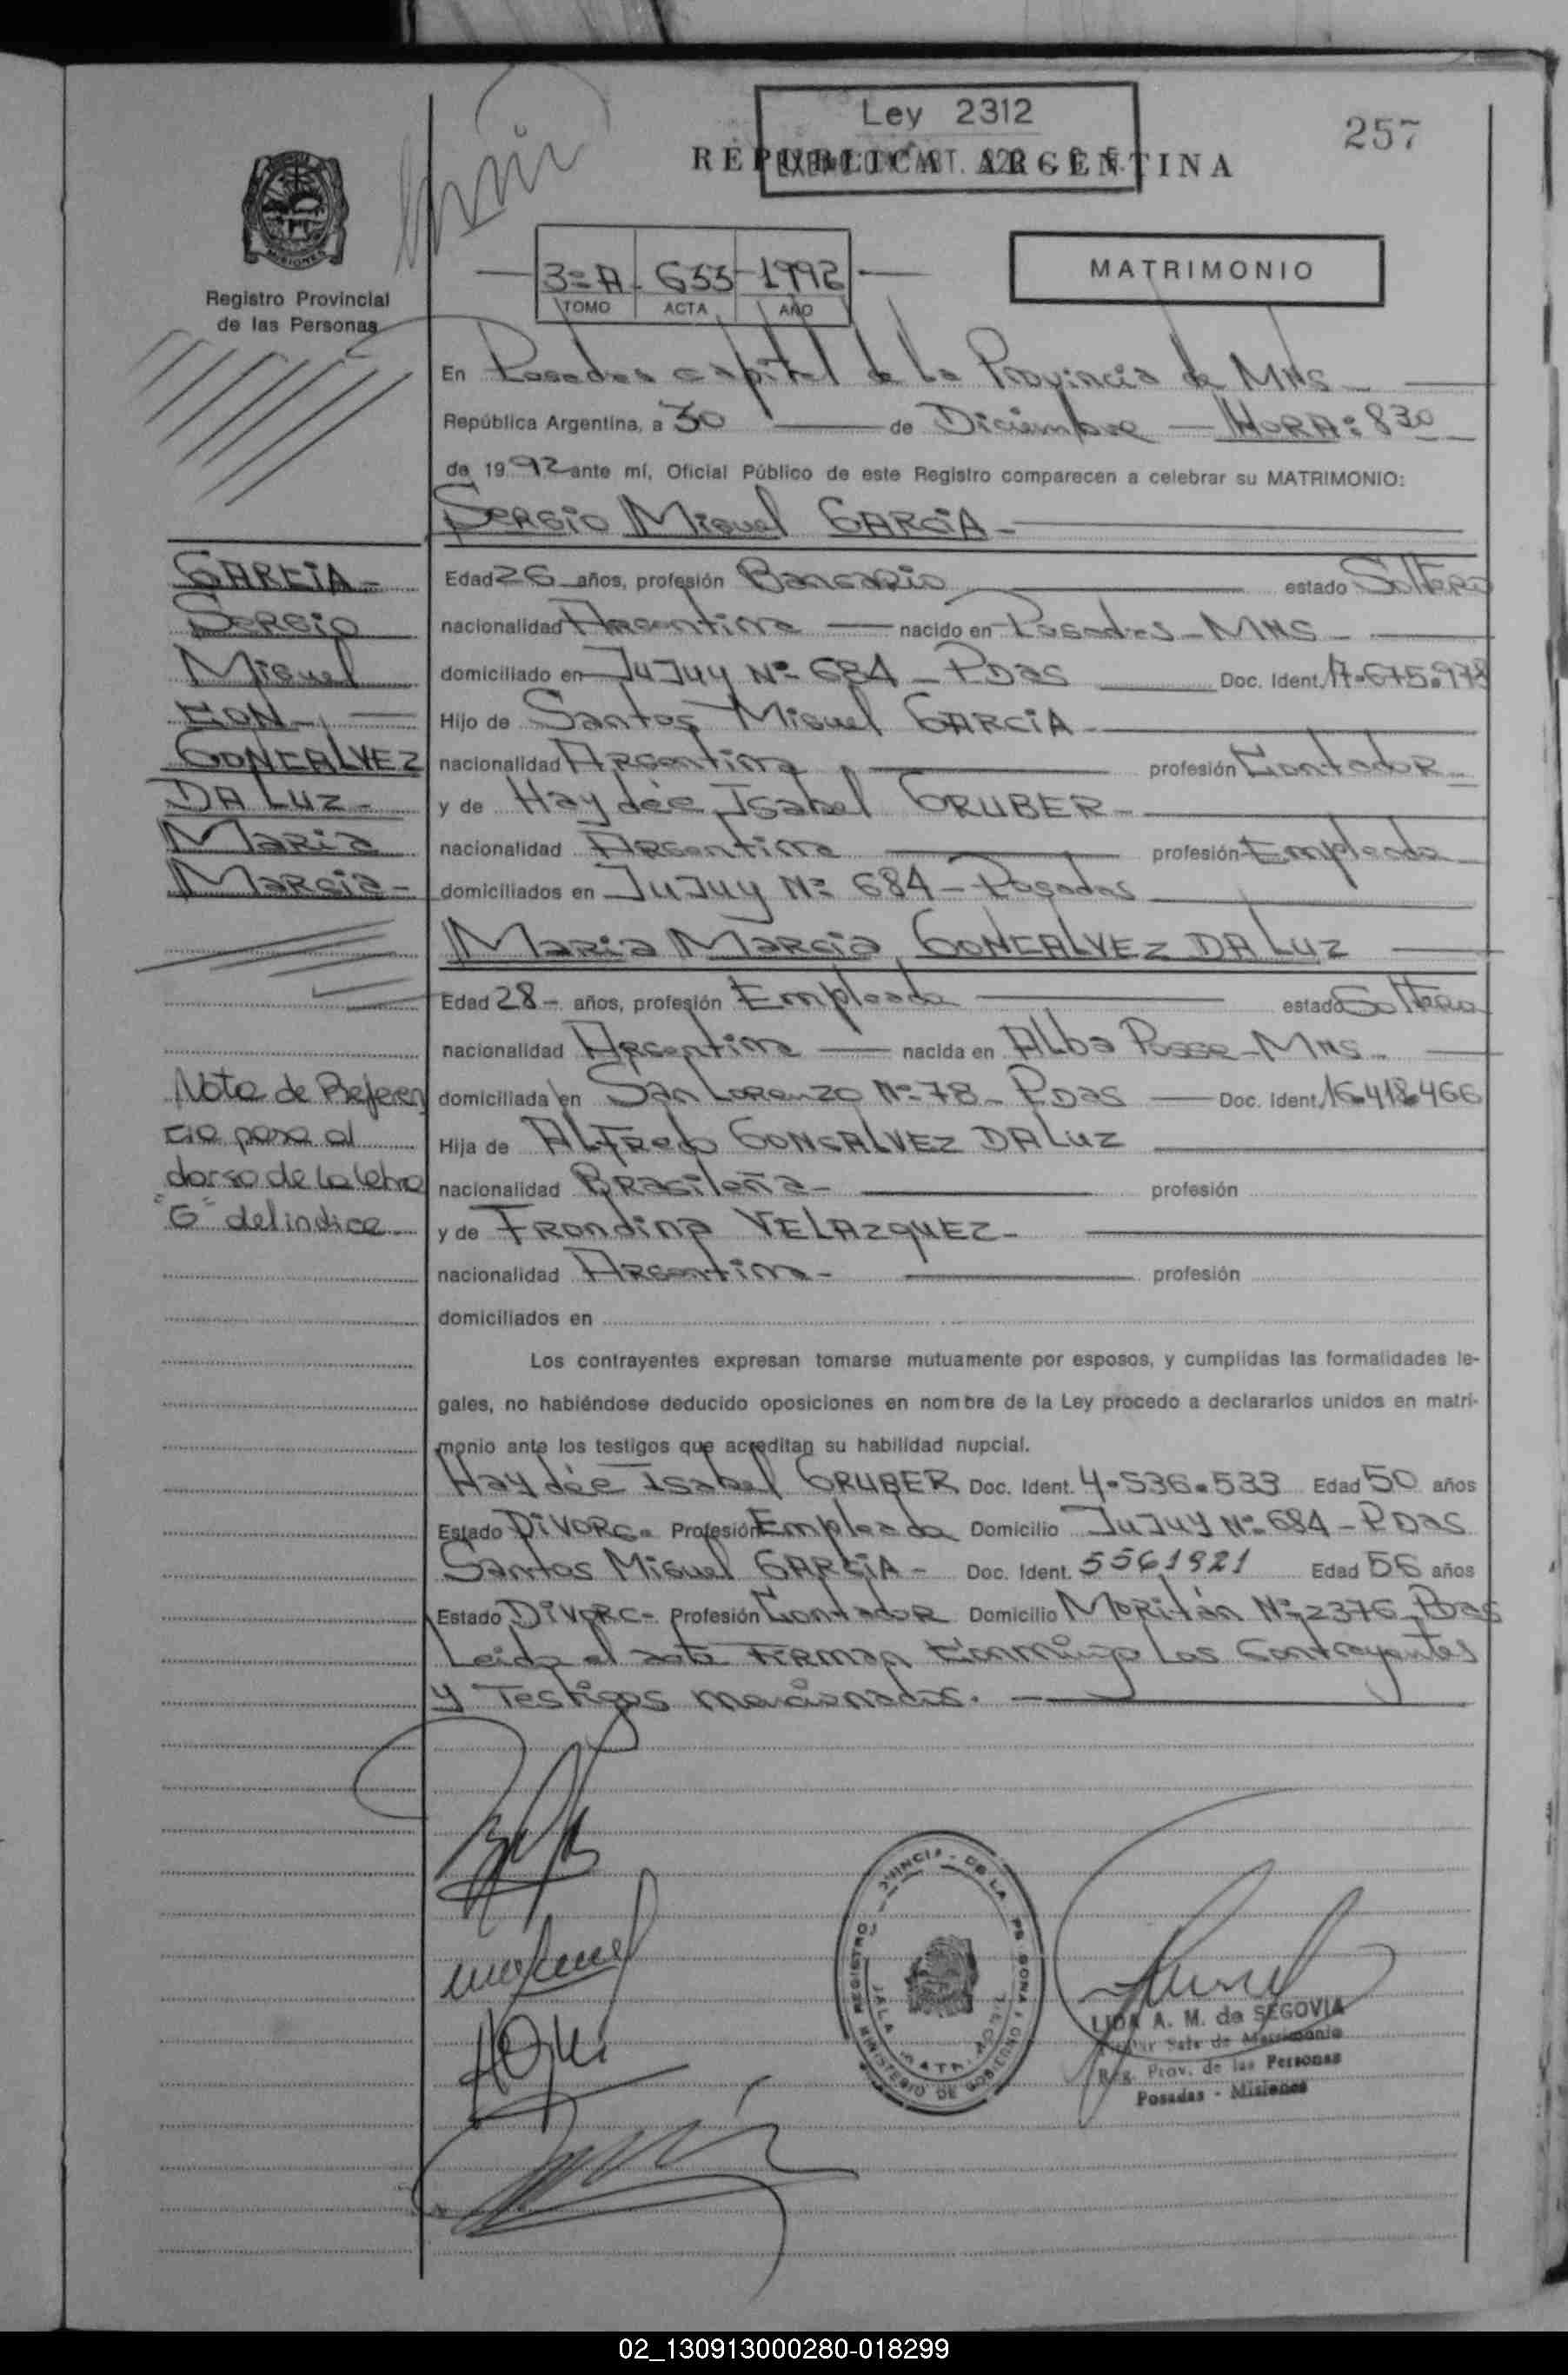 Ley 2312
257
REPUBLICA ARGENTINA
MISIONES
Registro Provincial
de las Personas
3=A - 633 - 1992
TOMO ACTA AÑO
MATRIMONIO
En Posadas capital de la Provincia de MNS -
República Argentina, a 30 de Diciembre - HORA: 830
de 1992 ante mí, Oficial Público de este Registro comparecen a celebrar su MATRIMONIO:
Sergio Miguel GARCIA -
GARCIA -
Sergio
Miguel
CON -
GONCALVEZ
DA LUZ -
Maria
Marcia -
Edad 26 años, profesión Bancario estado Soltero
nacionalidad Argentina nacido en Posadas - MNS -
domiciliado en JuJuy Nº 684 - PDas Doc. Ident. 17.675.978
Hijo de Santos Miguel GARCIA -
nacionalidad Argentina profesión Contador -
y de Haydée Isabel GRUBER -
nacionalidad Argentina profesión Empleada
domiciliados en JuJuy Nº 684 - Posadas
Maria Marcia GONCALVEZ DA LUZ
Edad 28 - años, profesión Empleada estado Soltera
nacionalidad Argentina nacida en Alba Posse - MNS -
domiciliada en San Lorenzo Nº 78 - PDas Doc. Ident. 16.418.466
Hija de Alfredo GONCALVEZ DA LUZ
nacionalidad Brasileña - profesión
y de Frondina VELAZQUEZ -
nacionalidad Argentina - profesión
domiciliados en
Nota de Referen
cia pasa al
dorso de la letra
"G" del indice
Los contrayentes expresan tomarse mutuamente por esposos, y cumplidas las formalidades le-
gales, no habiéndose deducido oposiciones en nombre de la Ley procedo a declararlos unidos en matri-
monio ante los testigos que acreditan su habilidad nupcial.
Haydée Isabel GRUBER Doc. Ident. 4.536.533 Edad 50 años
Estado Divorc. Profesión Empleada Domicilio JuJuy Nº 684 - PDas
Santos Miguel GARCIA - Doc. Ident. 5561921 Edad 56 años
Estado Divorc - Profesión Contador Domicilio Moritán Nº 2376 - PDas
Leida el acta Firman Conmigo Los Contrayentes
y Testigos mencionados. -
LIDA A. M. de SEGOVIA
Sala de Matrimonio
Reg. Prov. de las Personas
Posadas - Misiones
MINISTERIO DE GOBIERNO
02_130913000280-018299